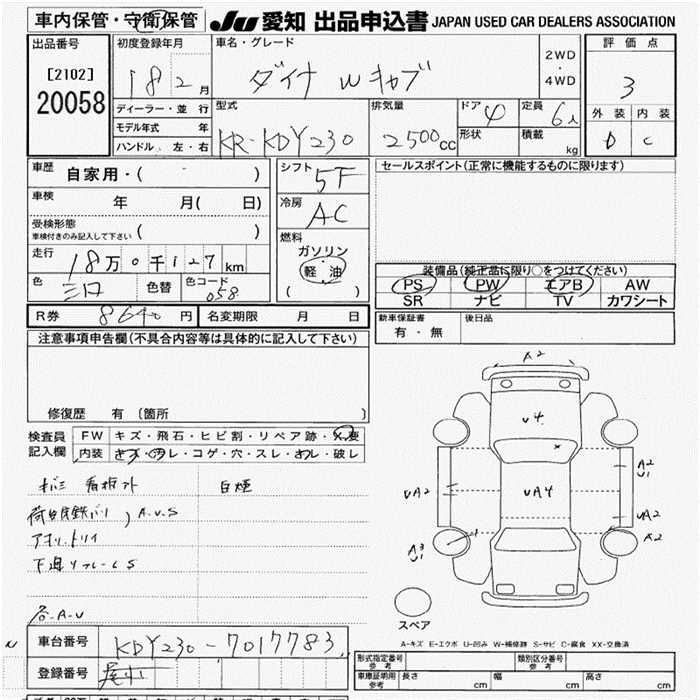 車内保管・守衛保管
JU 愛知 出品申込書 JAPAN USED CAR DEALERS ASSOCIATION
出品番号
[2102]
20058
初度登録年月
18 2 月
ディーラー・並 行
モデル年式 年
ハンドル 左・右
車名・グレード
ダイナ Wキャブ
2WD
・
4WD
評価点
3
外装 内装
D C
型式
KR-KDY230
排気量
2500 cc
ドア 4
形状
定員 6人
積載 kg
車歴 自家用・( )
車検 年 月( 日)
受検形態
車検付きのみ記入して下さい ( )
走行 18万0千127 km
色 シロ
色替
色コード 058
シフト 5F
冷房 AC
燃料
ガソリン
軽油
( )
セールスポイント(正常に機能するものに限ります)
装備品(純正品に限り○をつけてください)
PS PW エアB AW
SR ナビ TV カワシート
R券 8640 円
名変期限 月 日
新車保証書
有・無
後日品
注意事項申告欄(不具合内容等は具体的に記入して下さい)
修復歴 有 (箇所 )
検査員
記入欄
FW キズ・飛石・ヒビ割・リペア跡・X要
内装 キズ・ヨゴレ・コゲ・穴・スレ・カレ・破レ
白煙
A.U.S
下廻り
各A.U
車台番号 KDY230-7017783
登録番号
A2
U4
UA2
UA4
A2
U1
UA2
A3
U1
A2
スペア
A-キズ E-エクボ U-凹み W-補修跡 S-サビ C-腐食 XX-交換済
型式指定番号
参考
類別区分番号
参考
車庫証明用
参考
長さ cm
幅 cm
高さ cm